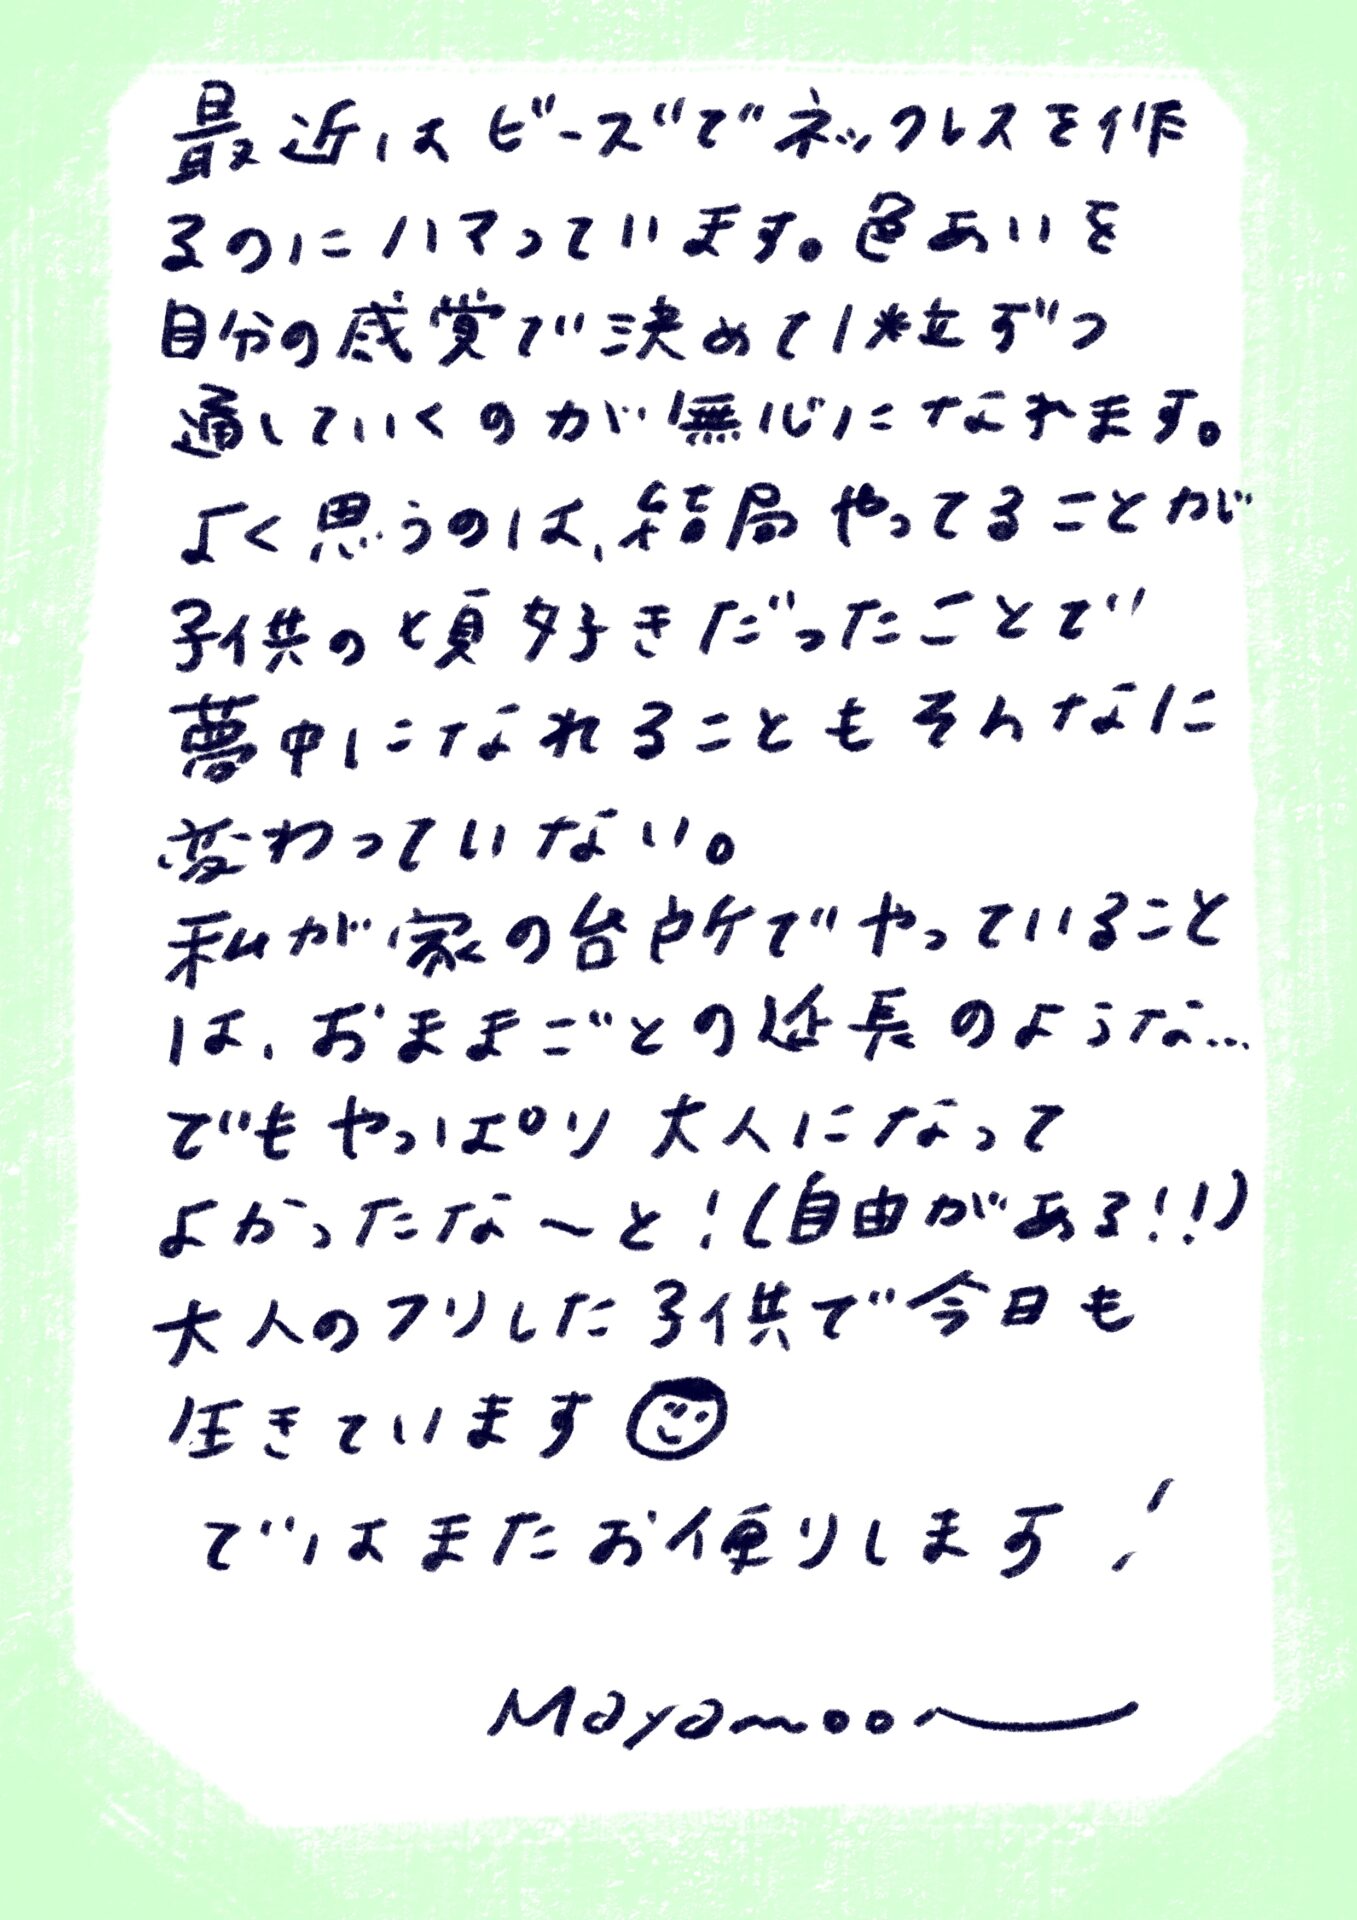 最近はビーズでネックレスを作
るのにハマっています。色あいを
自分の感覚で決めて1粒ずつ
通していくのが無心になれます。
よく思うのは、結局やってることが
子供の頃好きだったことで
夢中になれることもそんなに
変わっていない。
私が家の台所でやっていること
は、おままごとの延長のような...
でもやっぱり大人になって
よかったな〜と!(自由がある!!)
大人のフリした子供で今日も
生きています
ではまたお便りします!
Mayamoon